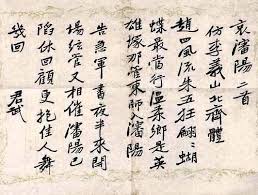 哀瀋陽二首
仿李義山北齊體
趙四風流朱五狂翩翩蝴
蝶最當行溫柔鄉是英
雄塚那管東師入瀋陽
告急軍書夜半來開
場絃管又相催瀋陽已
陷休回顧更抱佳人舞
幾回
君武